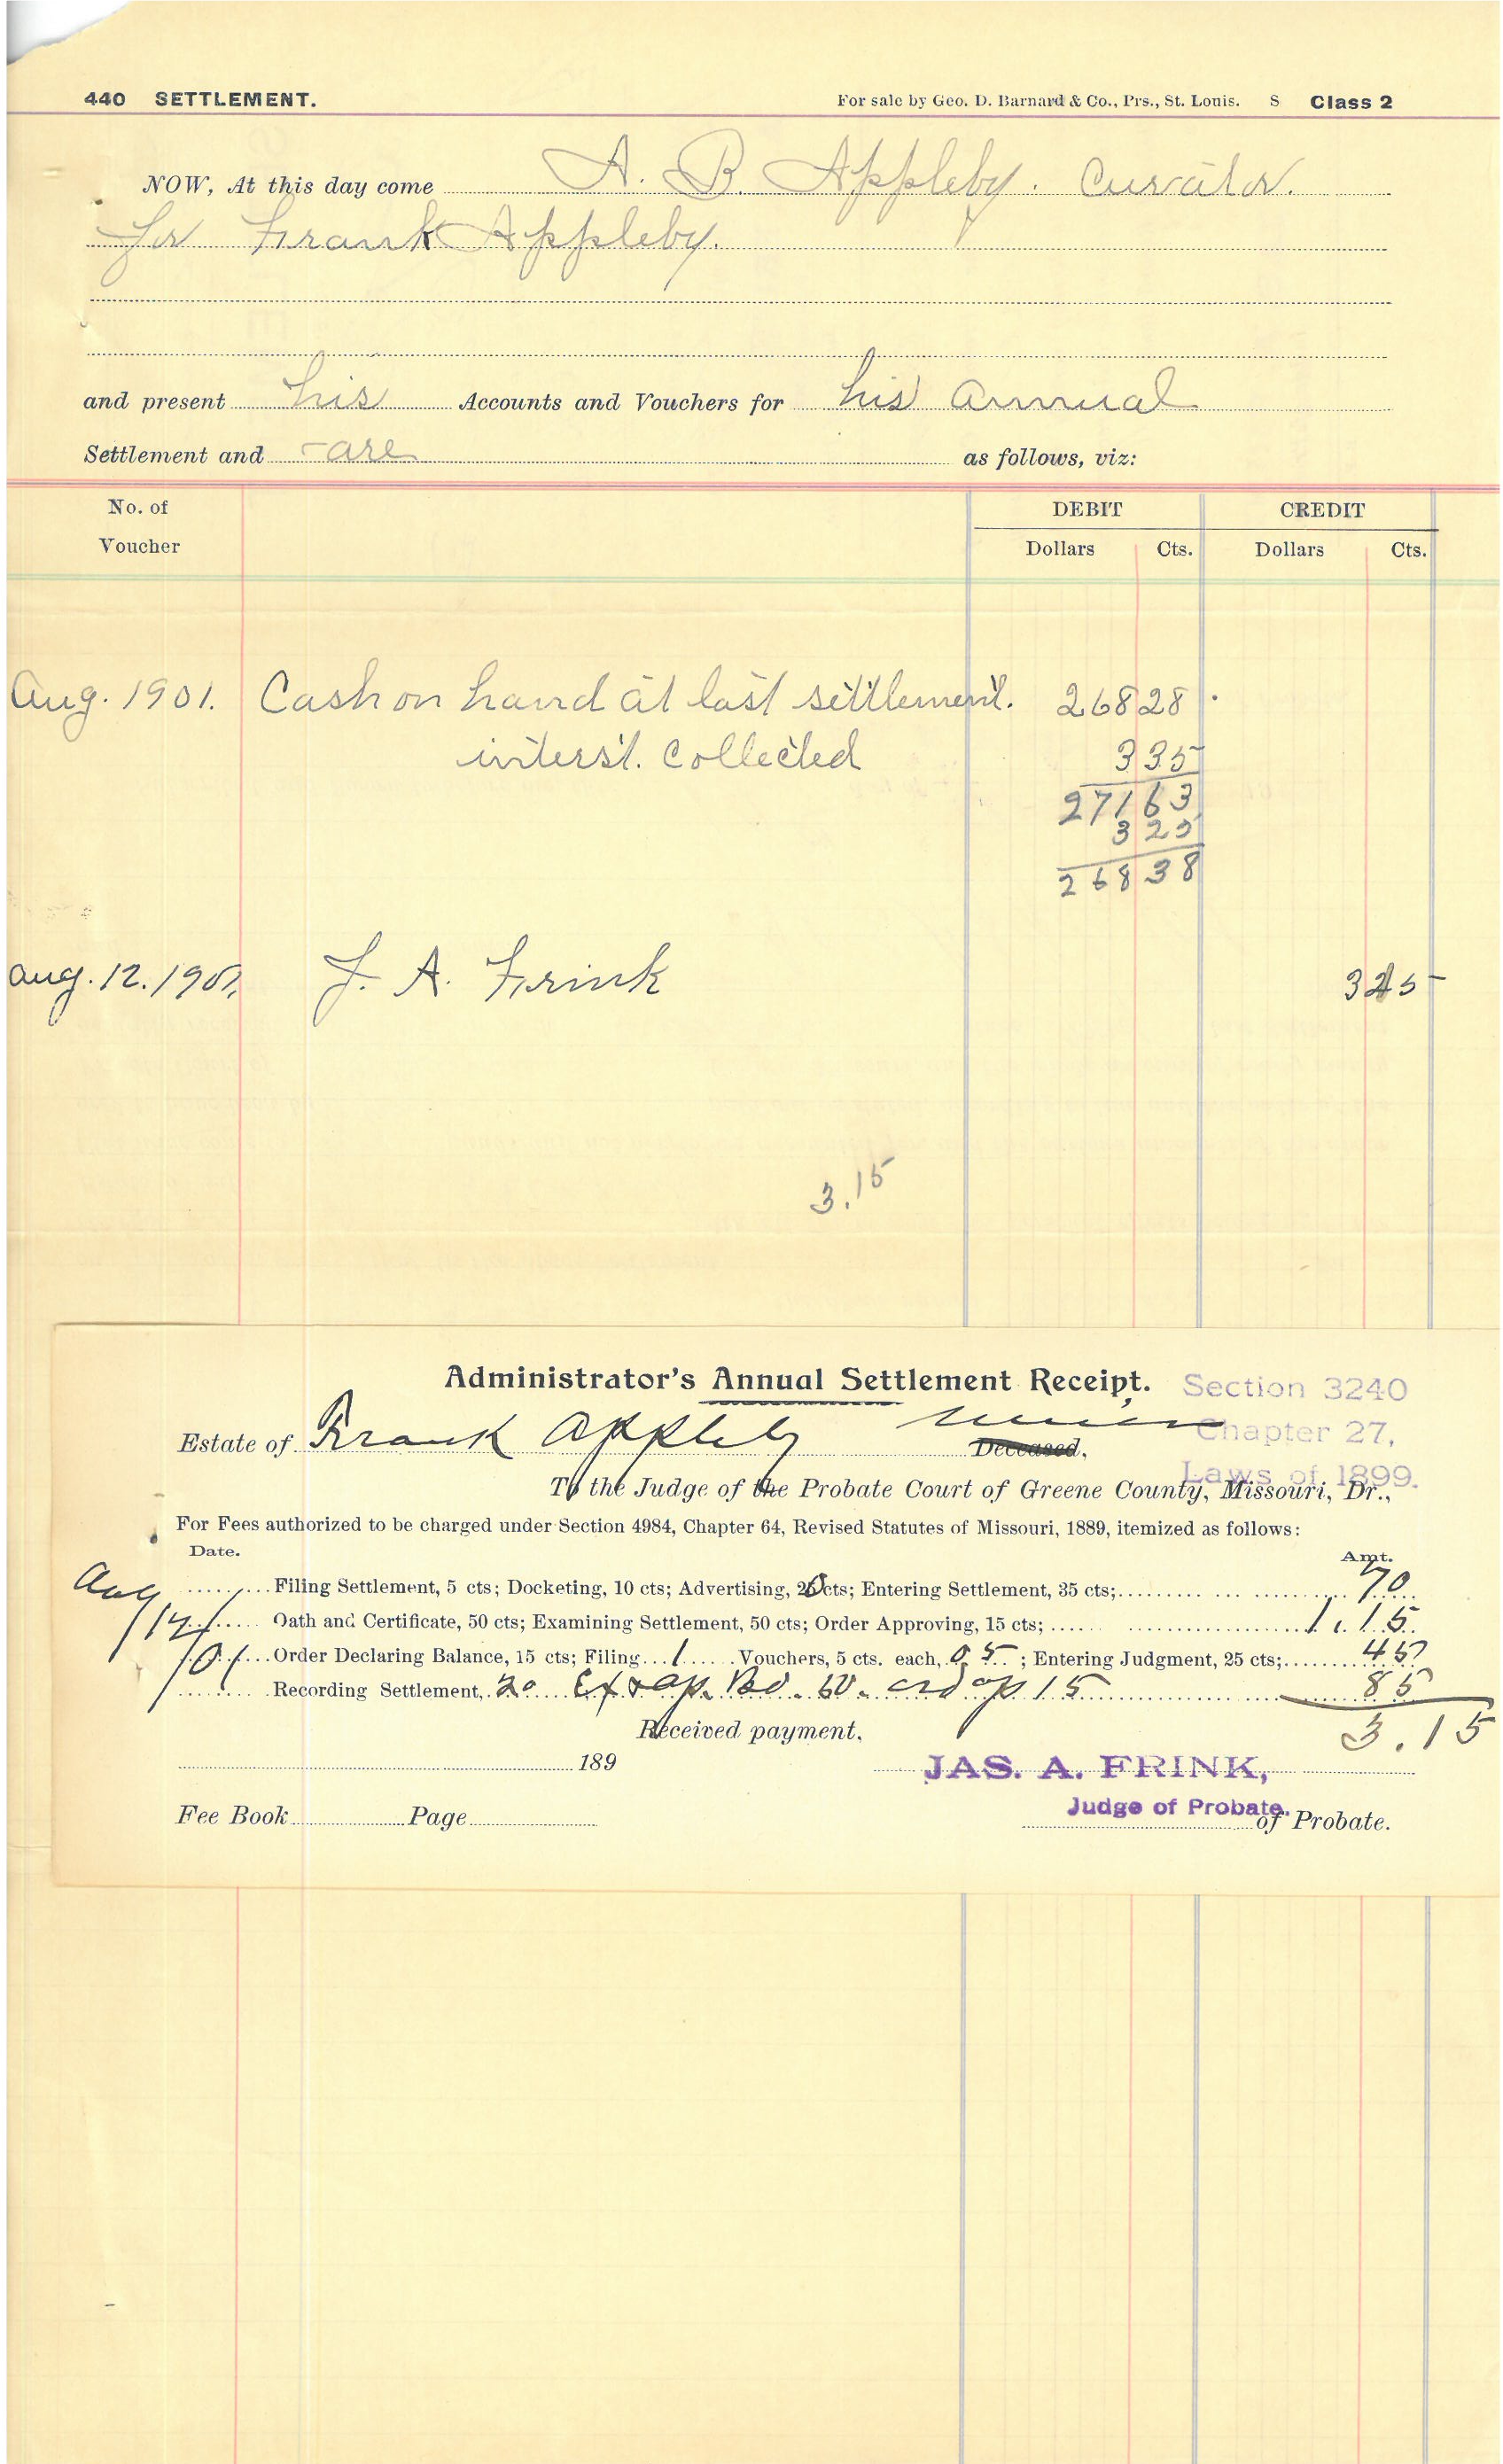 440 SETTLEMENT. For sale by Geo. D. Barnard & Co., Prs., St. Louis. S Class 2
NOW, At this day come A. B. Appleby. Curator.
for Frank Appleby.
and present his Accounts and Vouchers for his annual
Settlement and are as follows, viz:
No. of Voucher DEBIT CREDIT
Dollars Cts. Dollars Cts.
Aug. 1901. Cash on hand at last settlement. 268 28
interst. collected 3 35
271 63
3 25
268 38
Aug. 12. 1901. J. A. Frink 3 25
3.15
Administrator's Annual Settlement Receipt. Section 3240
Chapter 27,
Laws of 1899.
Estate of Frank Appleby minor Deceased.
To the Judge of the Probate Court of Greene County, Missouri, Dr.,
For Fees authorized to be charged under Section 4984, Chapter 64, Revised Statutes of Missouri, 1889, itemized as follows:
Date. Amt.
Aug Filing Settlement, 5 cts; Docketing, 10 cts; Advertising, 20 cts; Entering Settlement, 35 cts; 70
14 Oath and Certificate, 50 cts; Examining Settlement, 50 cts; Order Approving, 15 cts; 1.15
01 Order Declaring Balance, 15 cts; Filing 1 Vouchers, 5 cts. each, 05; Entering Judgment, 25 cts; 45
Recording Settlement, 20 Ex & ap. Bd. 50. ord ap 15 85
Received payment. 3.15
189 JAS. A. FRINK,
Judge of Probate.
Fee Book Page of Probate.